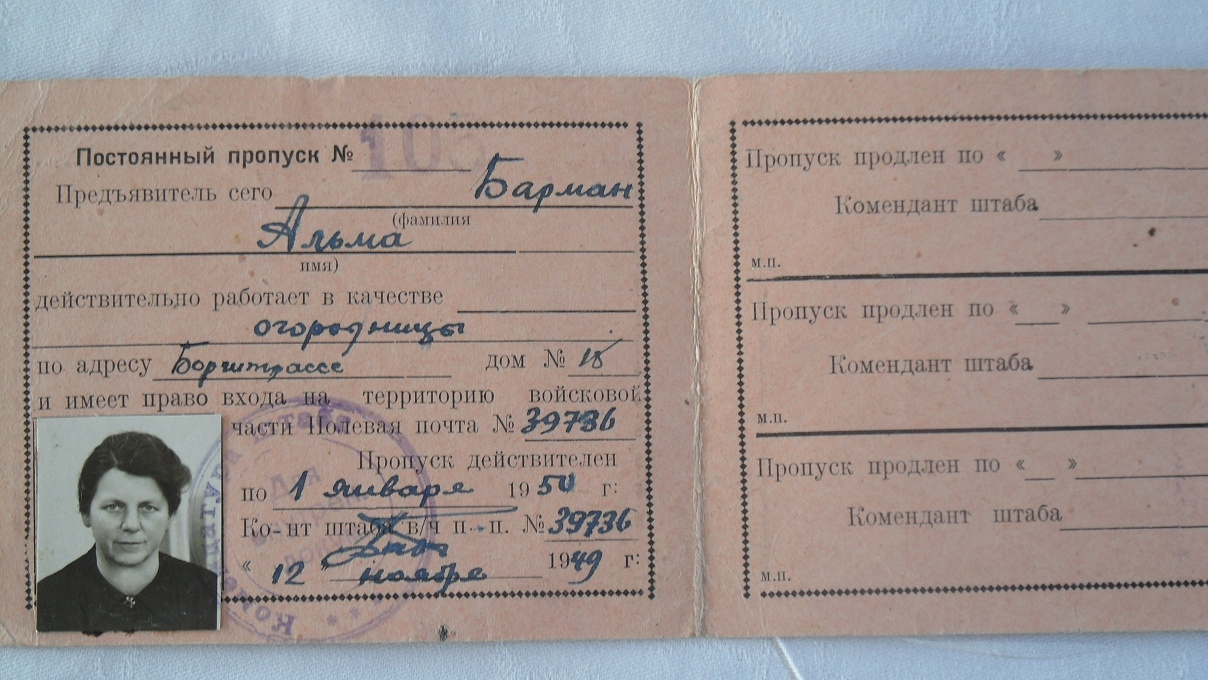 Постоянный пропуск № 103
Предъявитель сего Барман
(фамилия
Альма
имя)
действительно работает в качестве
огородницы
по адресу Боргштрассе дом № 18
и имеет право входа на территорию войсковой
части Полевая почта № 39736
Пропуск действителен
по 1 января 1950 г:
Ко-нт штаба в/ч п.-п. № 39736
« 12 ноября 1949 г:
Комендатура штаба
Для
Пропуск продлен по « »
Комендант штаба
м.п.
Пропуск продлен по « »
Комендант штаба
м.п.
Пропуск продлен по « »
Комендант штаба
м.п.